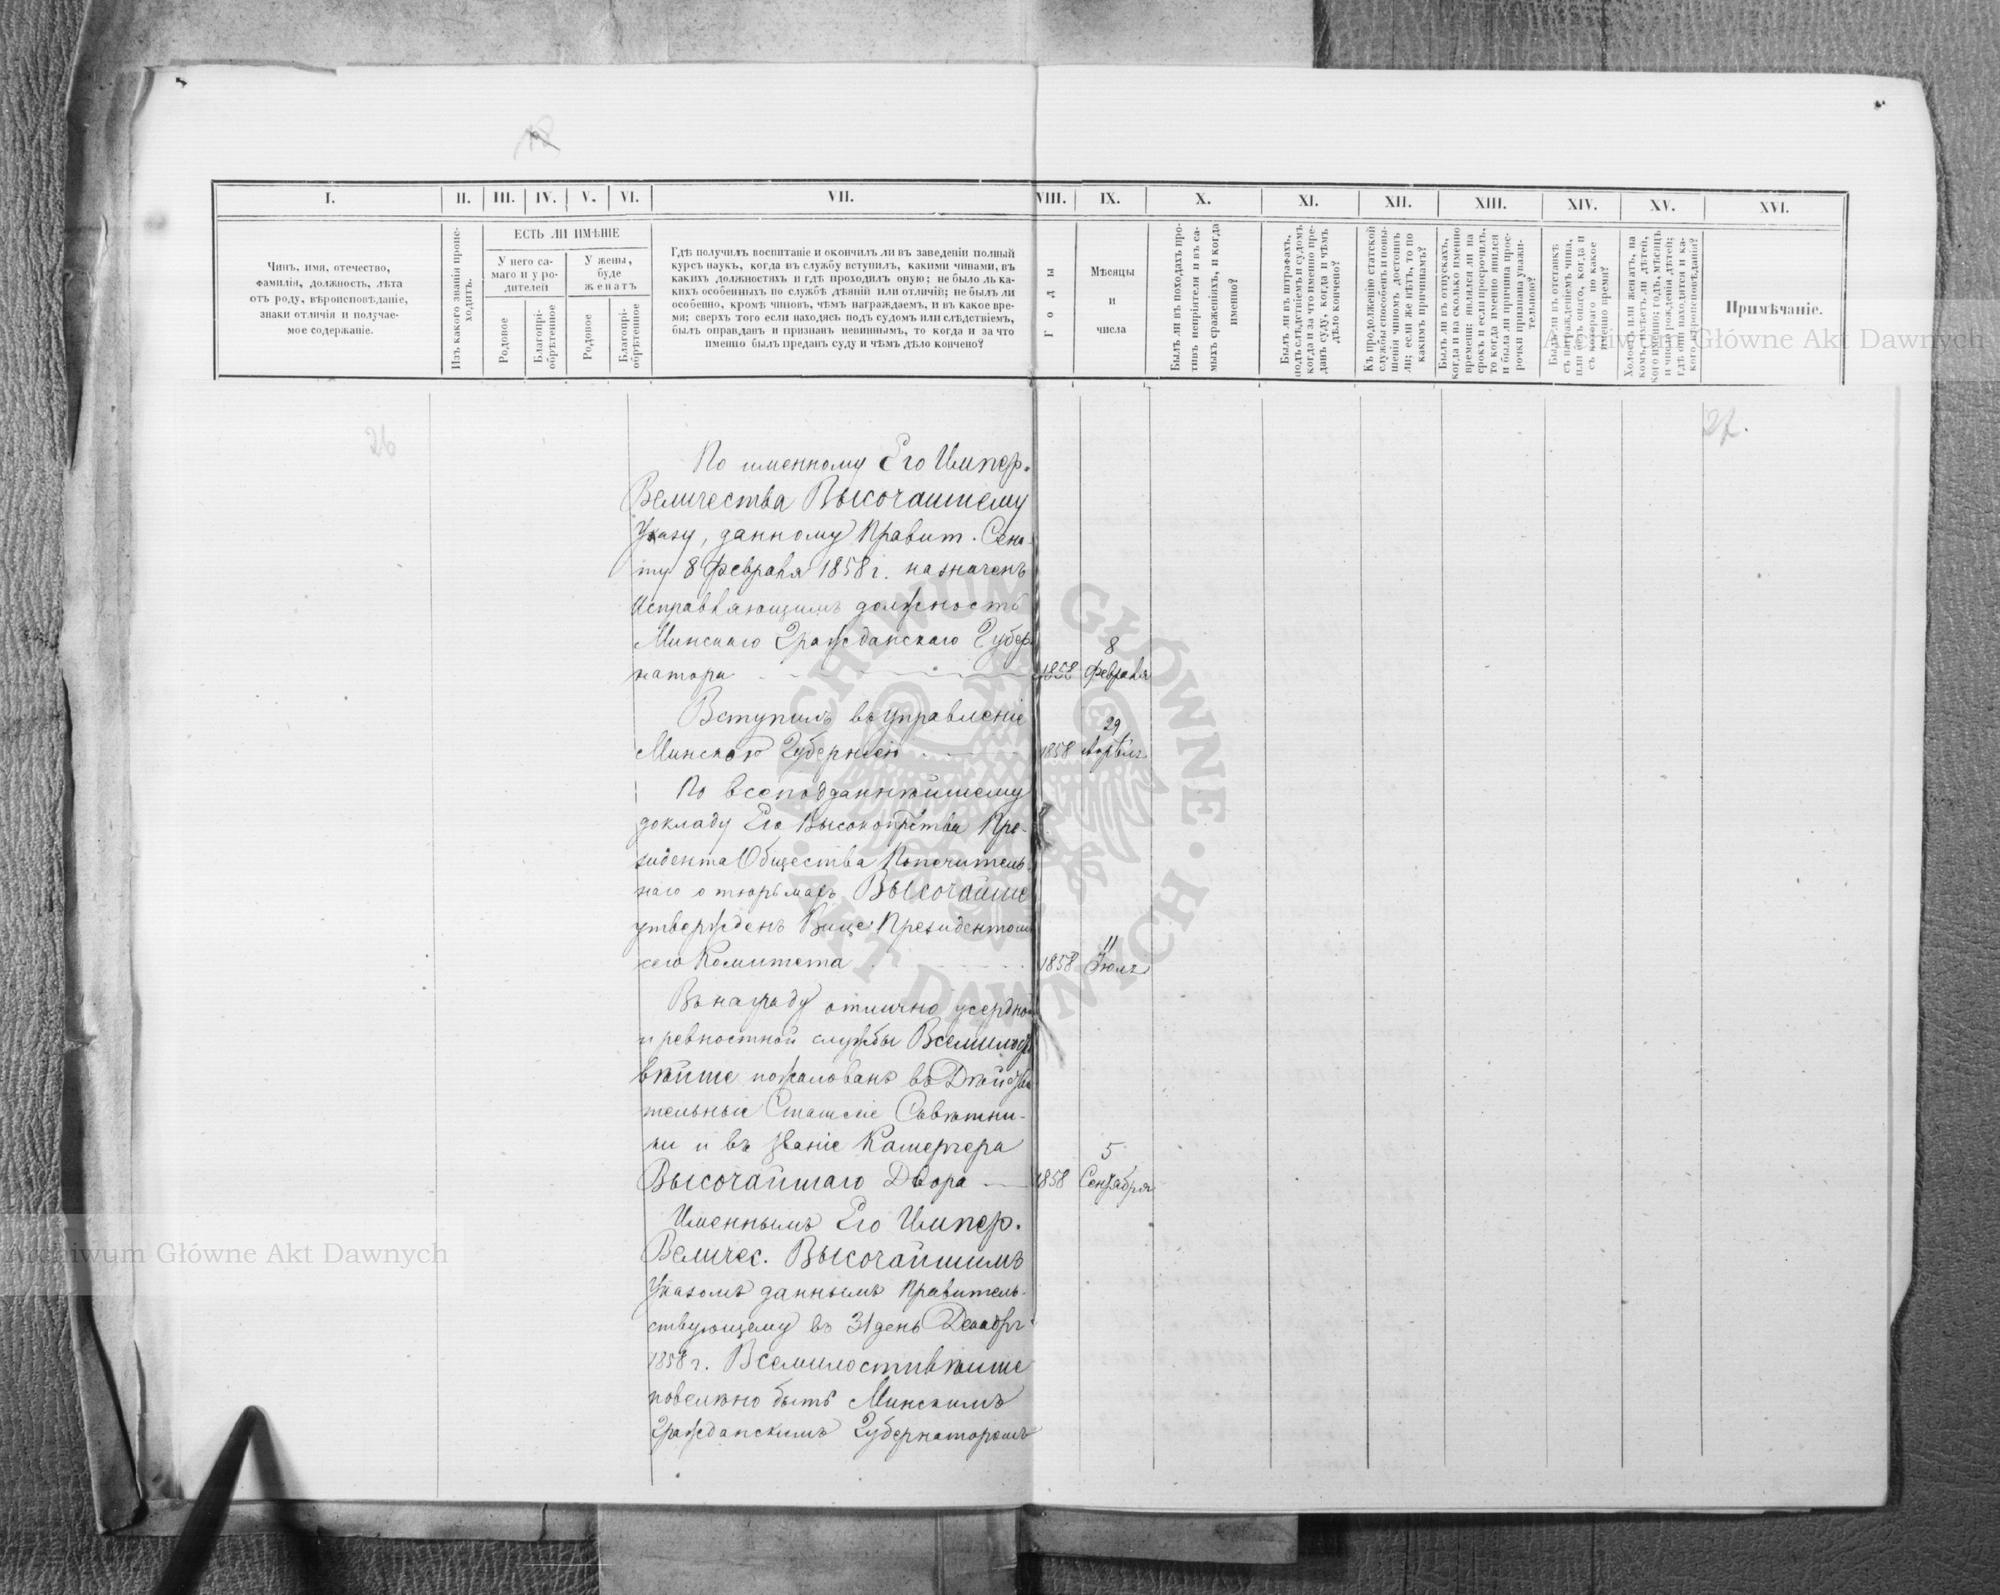 18
I. II. III. IV. V. VI. VII. VIII. IX. X. XI. XII. XIII. XIV. XV. XVI.
Чинъ, имя, отечество,
фамилія, должность, лѣта
отъ роду, вѣроисповѣданіе,
знаки отличія и получае-
мое содержаніе.
Изъ какого званія проис-
ходитъ.
ЕСТЬ ЛИ ИМѢНІЕ
У него са-
маго и у ро-
дителей
У жены,
буде
женатъ
Родовое
Благопрі-
обрѣтенное
Родовое
Благопрі-
обрѣтенное
Гдѣ получилъ воспитаніе и окончилъ ли въ заведеніи полный
курсъ наукъ, когда въ службу вступилъ, какими чинами, въ
какихъ должностяхъ и гдѣ проходилъ оную; не было ль ка-
кихъ особенныхъ по службѣ дѣяній или отличій; не былъ ли
особенно, кромѣ чиновъ, чѣмъ награждаемъ, и въ какое вре-
мя; сверхъ того если находясь подъ судомъ или слѣдствіемъ,
былъ оправданъ и признанъ невиннымъ, то когда и за что
именно былъ преданъ суду и чѣмъ дѣло кончено?
Годы
Мѣсяцы
и
числа
Былъ ли въ походахъ про-
тивъ непріятеля и въ са-
мыхъ сраженіяхъ, и когда
именно?
Былъ ли въ штрафахъ,
подъ слѣдствіемъ и судомъ,
когда и за что именно пре-
данъ суду, когда и чѣмъ
дѣло кончено?
Къ продолженію статской
службы способенъ и повы-
шенія чиномъ достоинъ
ли; если же нѣтъ, то по
какимъ причинамъ?
Былъ ли въ отпускахъ,
когда и на сколько именно
времени; явился ли на
срокъ и если просрочилъ,
то когда именно явился
и была ли причина прос-
рочки признана уважи-
тельною?
Былъ ли въ отставкѣ
съ награжденіемъ чина,
или безъ онаго, когда и
съ котораго по какое
именно время?
Холостъ или женатъ, на
комъ, имѣетъ ли дѣтей,
кого именно; годъ, мѣсяцъ
и число рожденія дѣтей;
гдѣ они находятся и ка-
кого вѣроисповѣданія?
Примѣчаніе.
26
27.
По именному Его Импер.
Величества Высочайшему
Указу, данному Правит. Сена-
ту 8 Февраля 1858 г. назначенъ
Исправляющимъ должность
Минскаго Гражданскаго Губер-
натора 1858 8 Февраля
Вступилъ въ управленіе
Минскою Губерніею 1858 29 Апрѣля
По всеподданнѣйшему
докладу Его Высокопр-ства Пре-
зидента Общества Попечитель-
наго о тюрьмахъ Высочайше
утвержденъ Вице Президентомъ
сего Комитета 1858 11 Іюля
Въ награду отлично усердной
и ревностной службы Всемилости-
вѣйше пожалованъ въ Дѣйстви-
тельные Статскіе Совѣтни-
ки и въ званіе Камергера
Высочайшаго Двора 1858 5 Сентября
Именнымъ Его Импер.
Величес. Высочайшимъ
Указомъ даннымъ Правитель-
ствующему въ 31 день Декабря
1858 г. Всемилостивѣйше
повелѣно быть Минскимъ
Гражданскимъ Губернаторомъ
Archiwum Główne Akt Dawnych
Archiwum Główne Akt Dawnych
ARCHIWUM GŁÓWNE AKT DAWNYCH